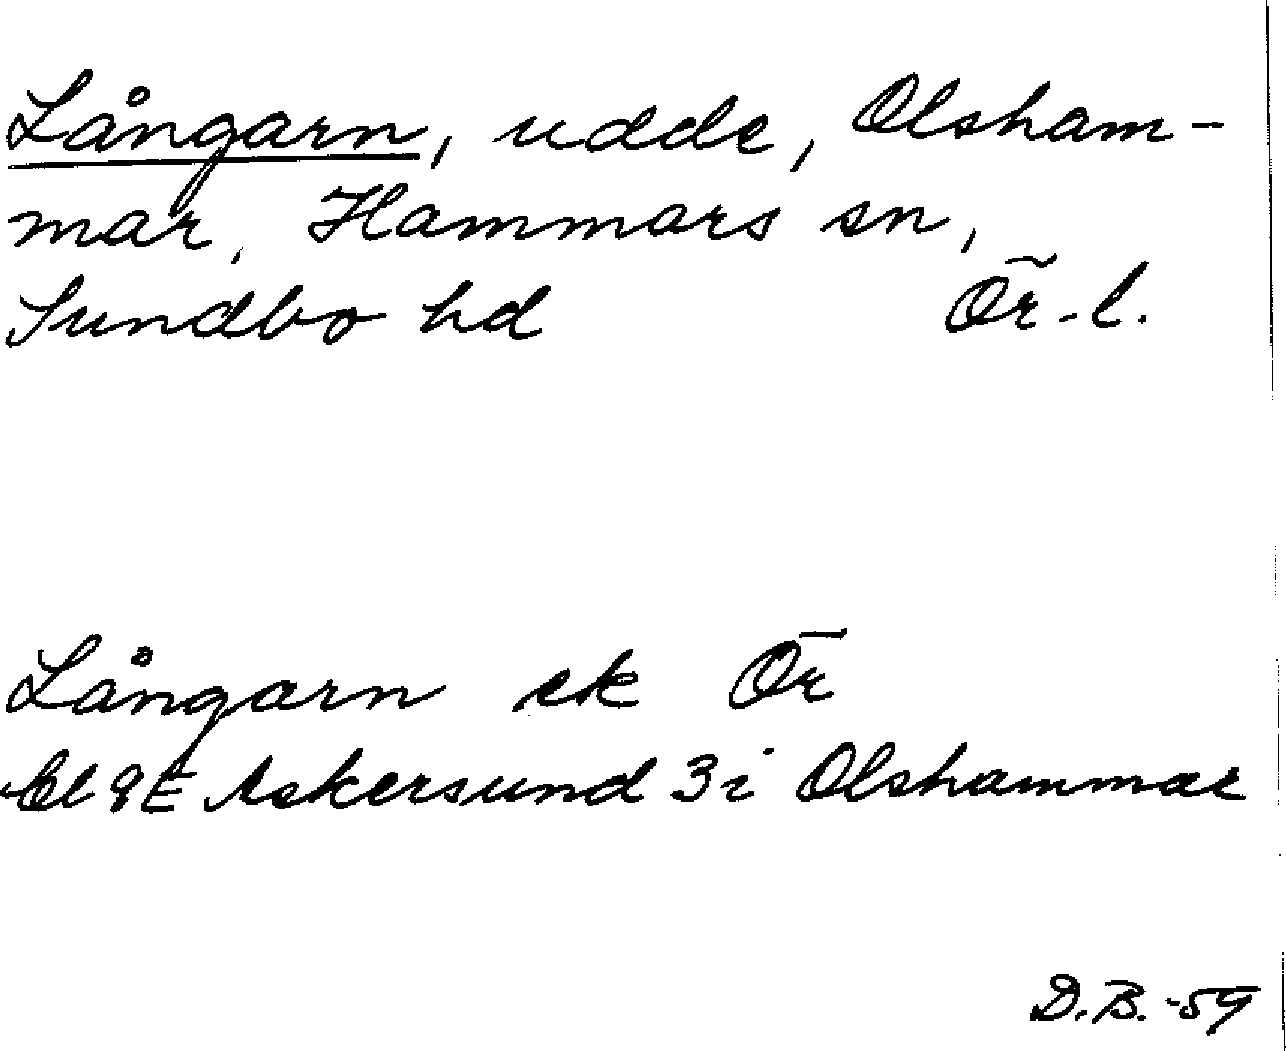 Långarn, udde, Olsham-
mar, Hammars sn,
Sundbo hd Ör-l.
Långarn ek Ör
bl 9E Askersund 3i Olshammar
D.B. -59